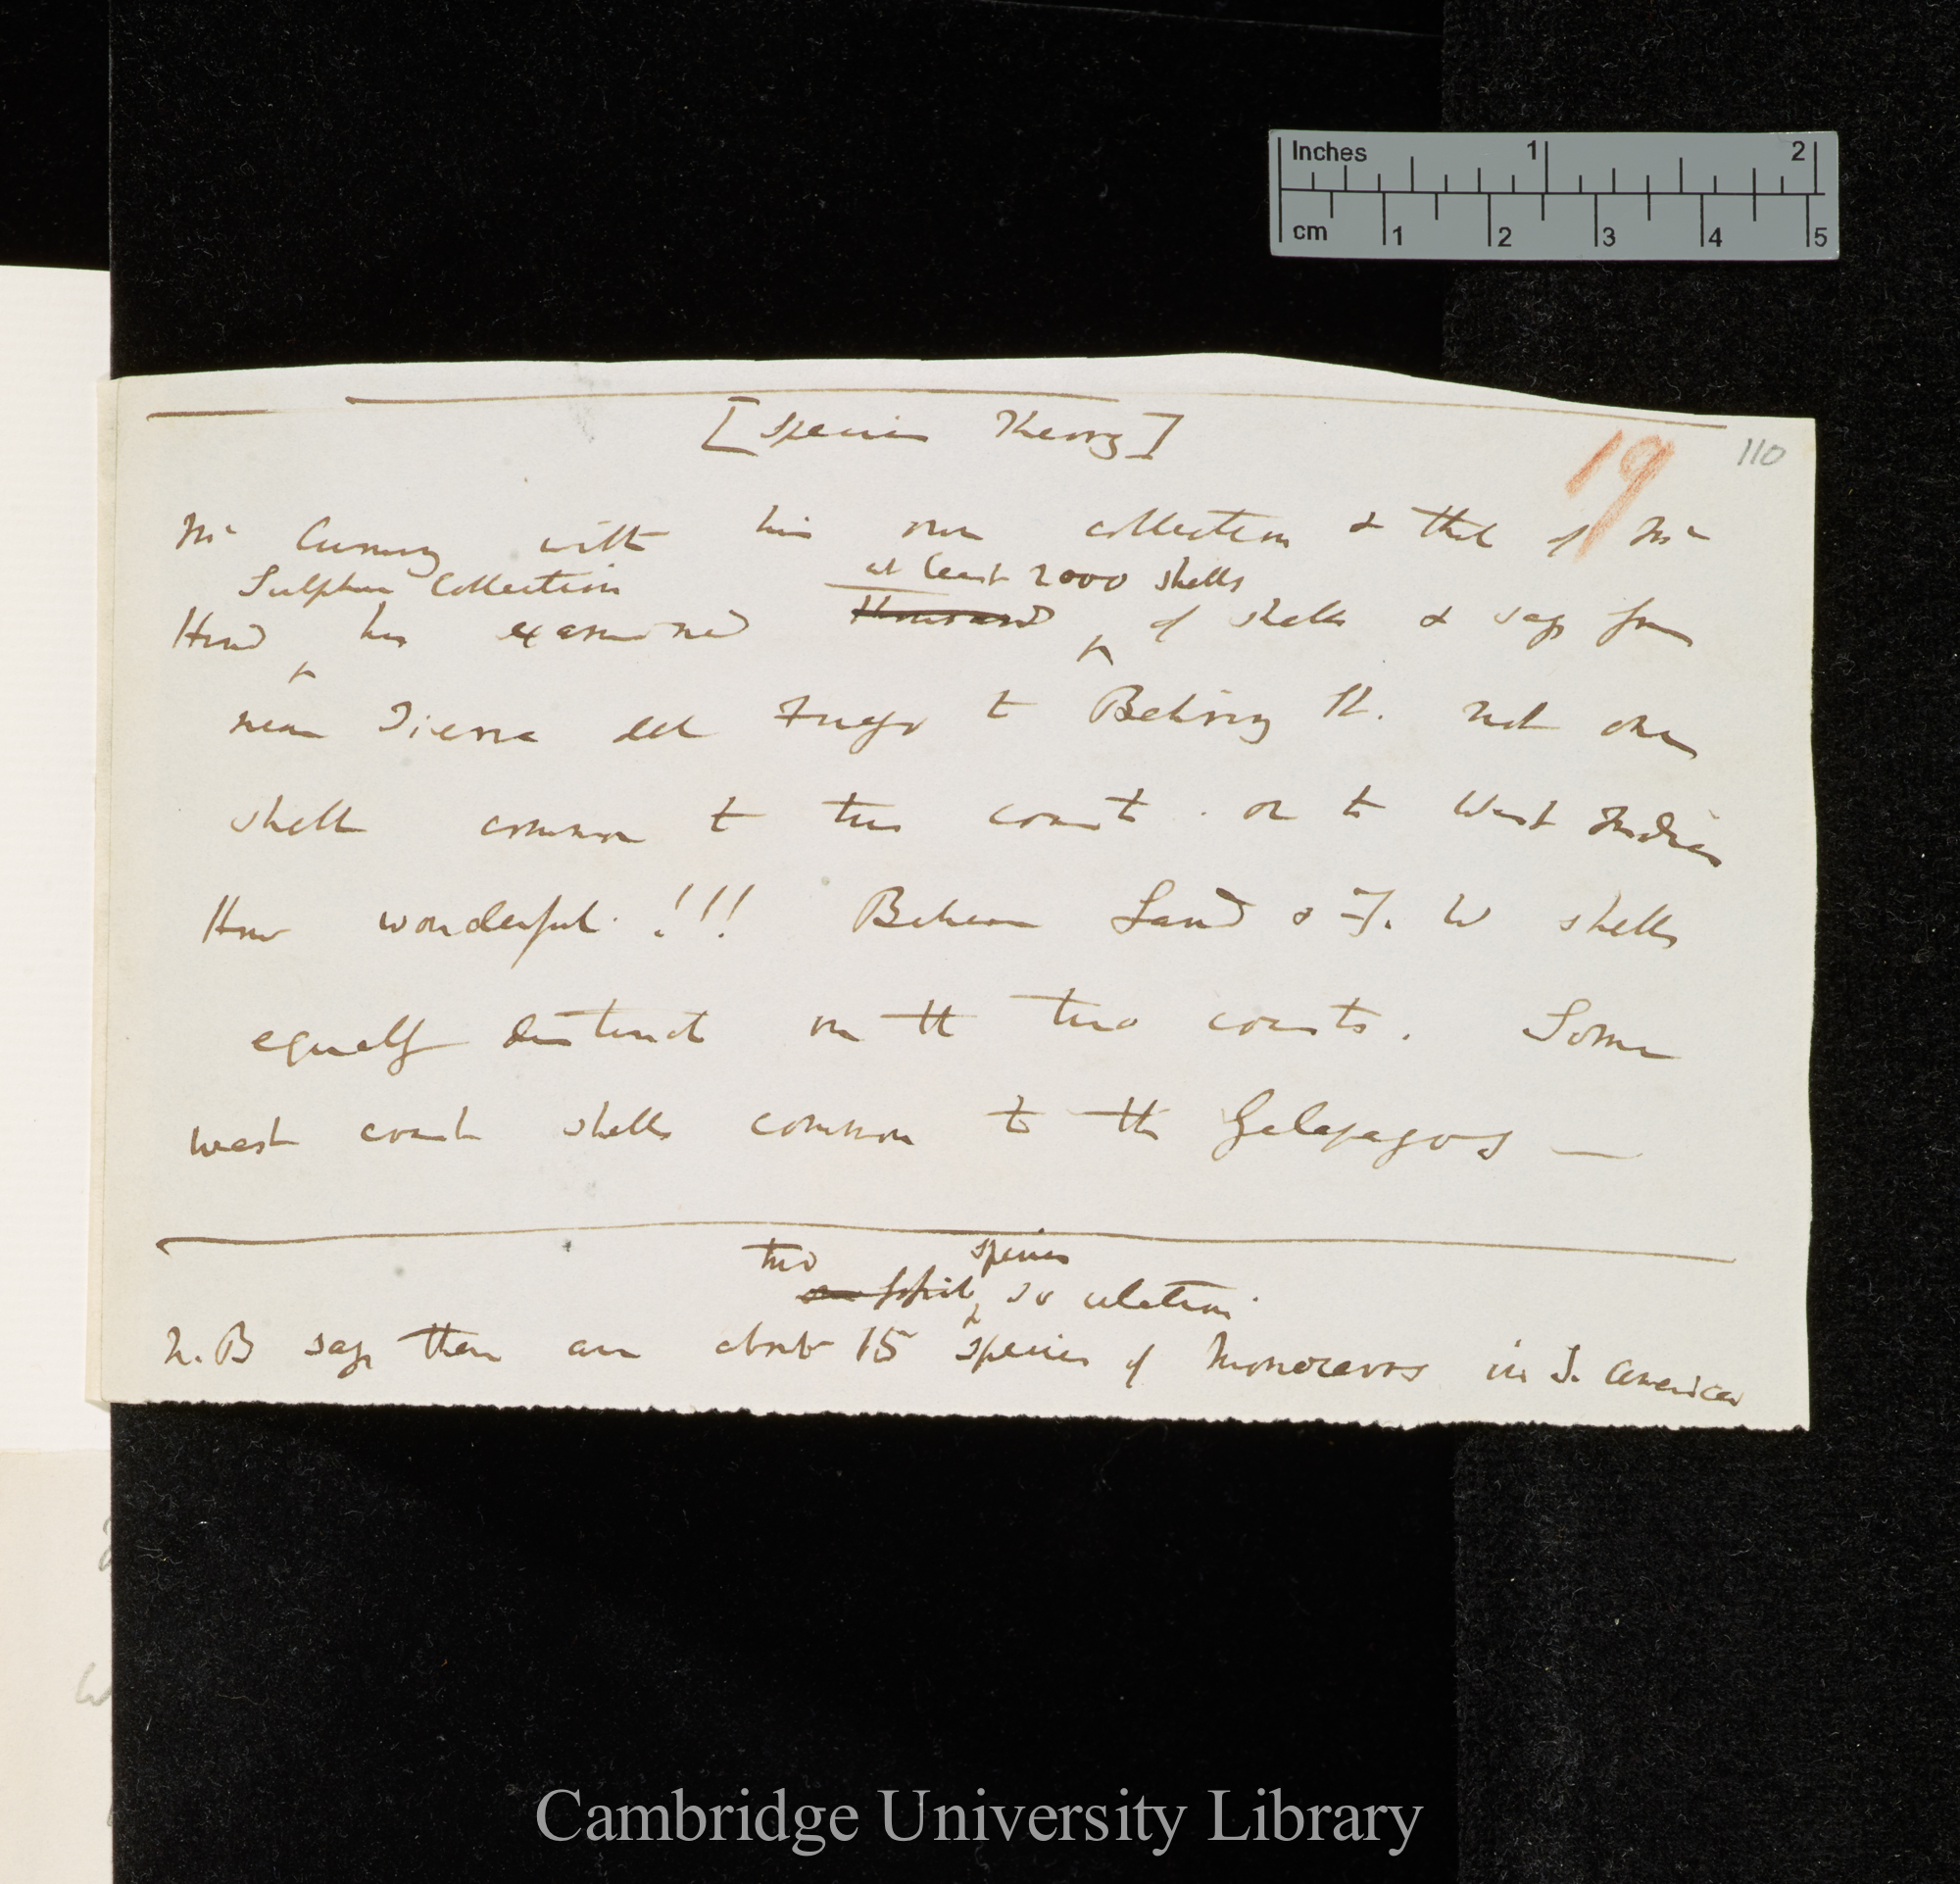 Inches 1 2
cm 1 2 3 4 5
[Species Theory]
19
110
Mr Cuming with his own collection & that of Mr
Sulphur Collection at least 2000 shells
Hind has examined thousand of shells & says from
near Tierra del Fuego to Behring St. not one
shell common to two coasts. or to West Indies
How wonderful. !!! Between Land & F. W shells
equally distinct on the two coasts. Some
west coast shells common to the Galapagos —
two species
fossil so relation.
N.B says there are about 15 species of Monoceros in S. America
Cambridge University Library